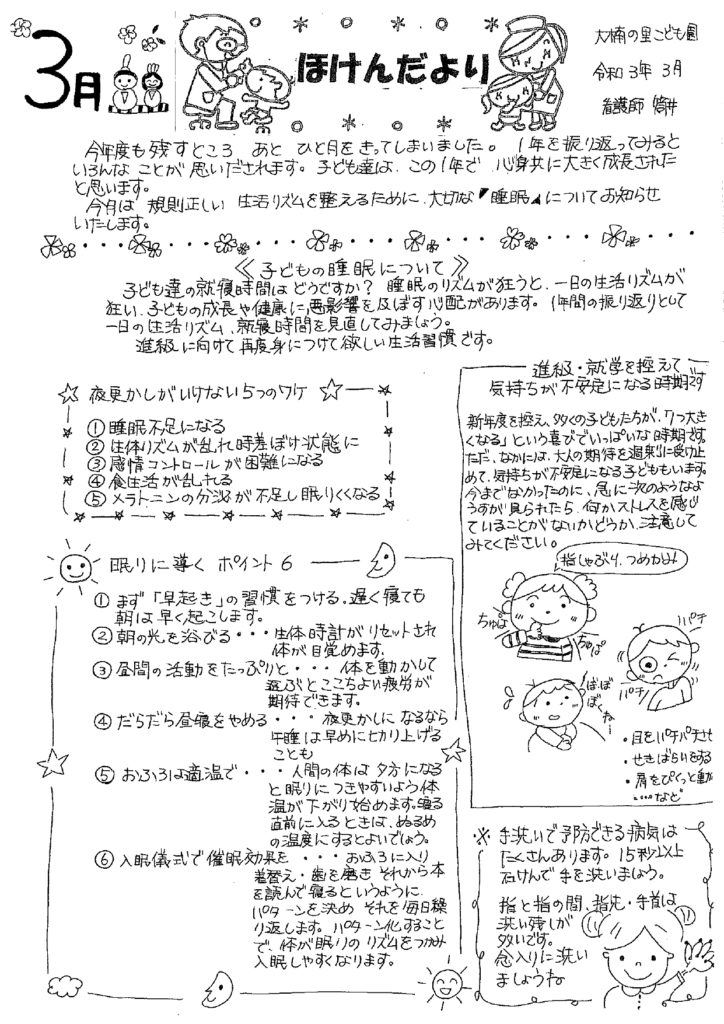 3月
ほけんだより
大楠の里こども園
令和3年 3月
看護師 筒井
今年度も残すところ あと ひと月をきってしまいました。 1年を振り返ってみると
いろんな ことが 思いだされます。子ども達は、この1年で 心身共に大きく成長された
と思います。
今月は 規則正しい 生活リズムを整えるために、大切な『睡眠』についてお知らせ
いたします。
《子どもの睡眠について》
子ども達の就寝時間は どうですか? 睡眠のリズムが狂うと、一日の生活リズムが
狂い、子どもの成長や健康に悪影響を及ぼす心配があります。1年間の振り返りとして
一日の生活リズム、就寝時間を見直してみましょう。
進級に向けて 再度身につけて欲しい生活習慣です。
☆ 夜更かしがいけない5つのワケ ☆
① 睡眠不足になる
② 生体リズムが乱れ時差ぼけ状態に
③ 感情コントロールが困難になる
④ 食生活が乱れる
⑤ メラトニンの分泌が不足し眠りくくなる
眠りに導く ポイント6
① まず「早起き」の習慣をつける。遅く寝ても
朝は早く起こします。
② 朝の光を浴びる・・・生体時計がリセットされ
体が目覚めます。
③ 昼間の活動をたっぷりと・・・ 体を動かして
遊ぶとここちよい疲労が
期待できます。
④ だらだら昼寝をやめる・・・ 夜更かしになるなら
午睡は早めに切り上げる
ことも
⑤ おふろは適温で・・・人間の体は夕方になる
と眠りにつきやすいよう体
温が下がり始めます。寝る
直前に入るときは、ぬるめ
の温度にするとよいでしょう。
⑥ 入眠儀式で催眠効果を ・・・ おふろに入り
着替え・歯を磨き それから本
を読んで寝るというように、
パターンを決め それを毎日繰
り返します。パターン化すること
で、体が眠りのリズムをつかみ
入眠しやすくなります。
進級・就学を控えて
気持ちが不安定になる時期です
新年度を控え、多くの子どもたちが、「1つ大き
くなる」という喜びでいっぱいな時期です。
ただ、なかには、大人の期待を過剰に受け止
めて、気持ちが不安定になる子どももいます。
今までなかったのに、急に次のようなよ
うすが見られたら、何かストレスを感じ
ていることがないかどうか、注意して
みてください。
指しゃぶり、つめかみ
ちゅぱ
ちゅぱ
パチ
パチ
ぼ、ぼ
ぼくね〜
・目をパチパチさせ
・せきばらいをする
・肩をぴくっと動か
・・・・など
※ 手洗いで予防できる病気は
たくさんあります。15秒以上
石けんで手を洗いましょう。
指と指の間、指先・手首は
洗い残しが
多いです。
念入りに洗い
ましょうね